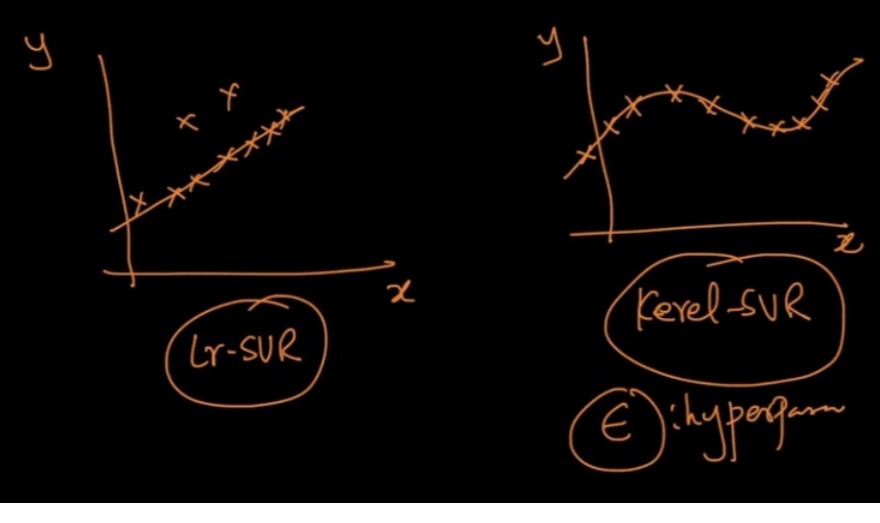 y
x
Lr-SVR
y
x
Kerel-SVR
ϵ:hyperparam